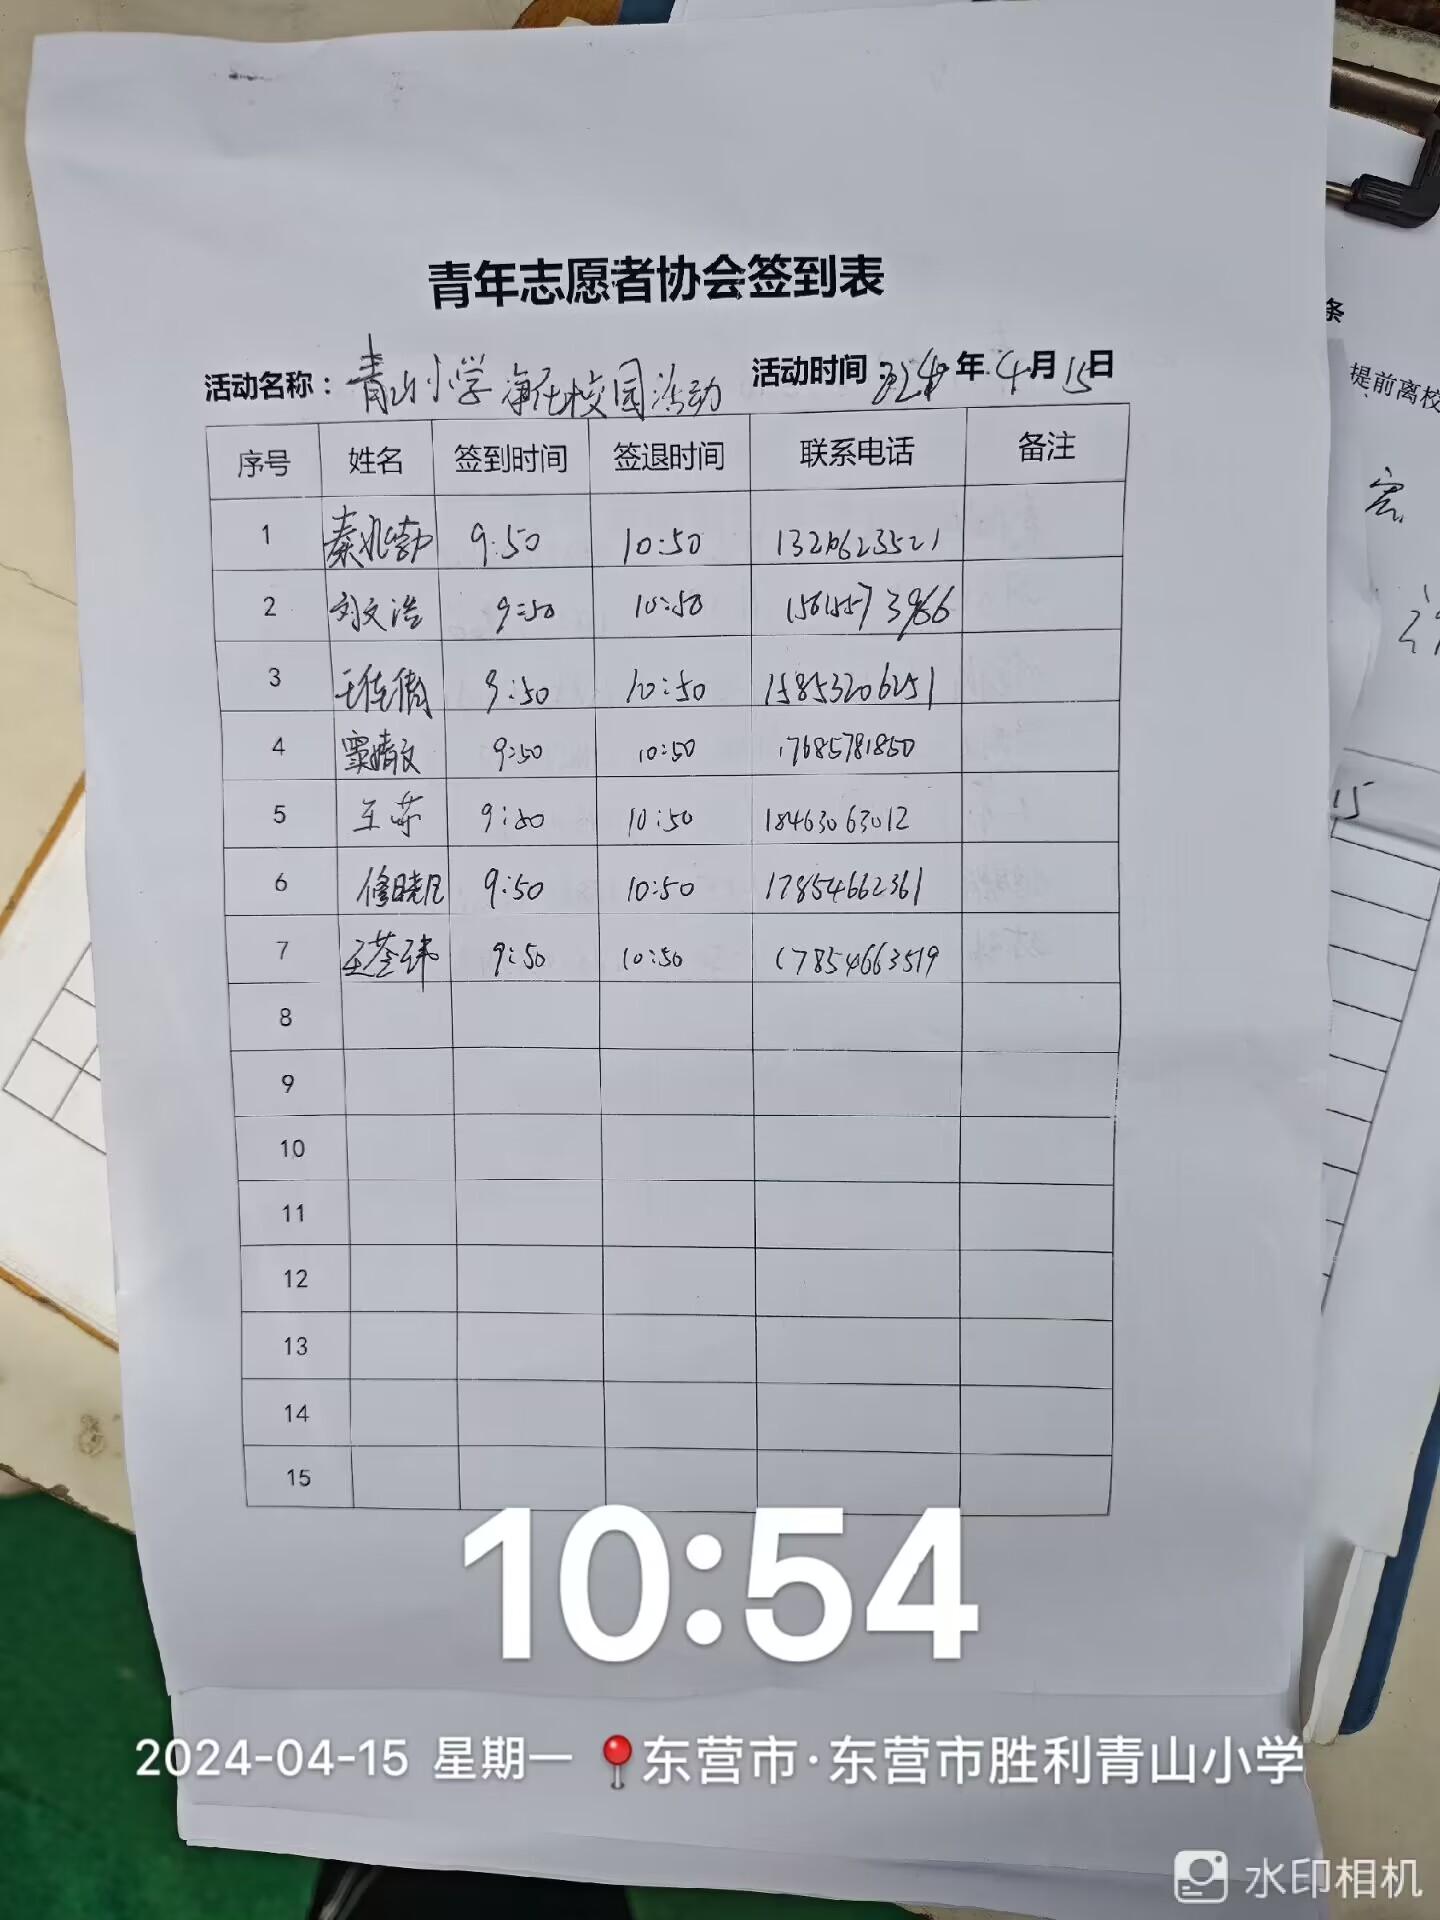 青年志愿者协会签到表
活动名称：青山小学净在校园活动 活动时间：2024年4月15日
序号 姓名 签到时间 签退时间 联系电话 备注
1 秦兆勃 9:50 10:50
2 刘文浩 9:50 10:50 15615573966
3 9:50 10:50 15853206251
4 窦婧文 9:50 10:50 17685781850
5 王苏 9:50 10:50 18463063012
6 修晓凡 9:50 10:50 17854662361
7 王荃玮 9:50 10:50 17854663519
8
9
10
11
12
13
14
15
条
提前离校
宏
15
10:54
2024-04-15 星期一 东营市·东营市胜利青山小学
水印相机